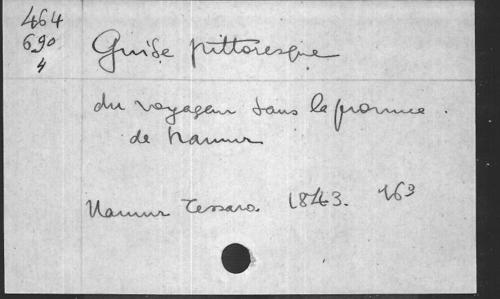 464
690
4
Guide pittoresque
du voyageur dans la province.
de Namur
Namur Tessaro. 1843. 16°